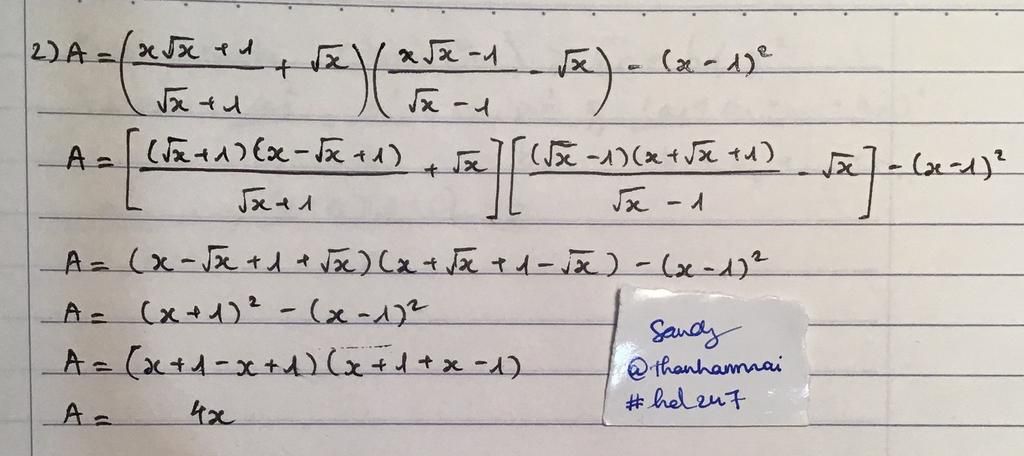 2) A = ( (x√x + 1)/(√x + 1) + √x ) ( (x√x - 1)/(√x - 1) - √x ) - (x - 1)²
A = [ (√x + 1)(x - √x + 1)/(√x + 1) + √x ] [ (√x - 1)(x + √x + 1)/(√x - 1) - √x ] - (x - 1)²
A = (x - √x + 1 + √x)(x + √x + 1 - √x) - (x - 1)²
A = (x + 1)² - (x - 1)²
A = (x + 1 - x + 1)(x + 1 + x - 1)
A = 4x
Sandy
#hel247